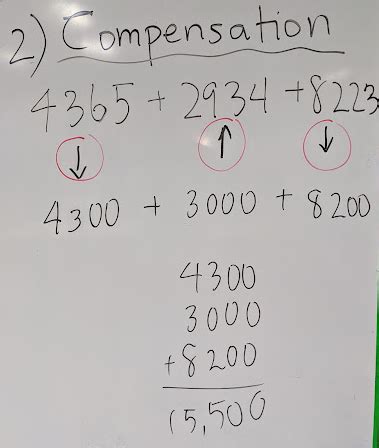 2) Compensation
4365 + 2934 + 8223
↓ ↑ ↓
4300 + 3000 + 8200
4300
3000
+8200
15,500